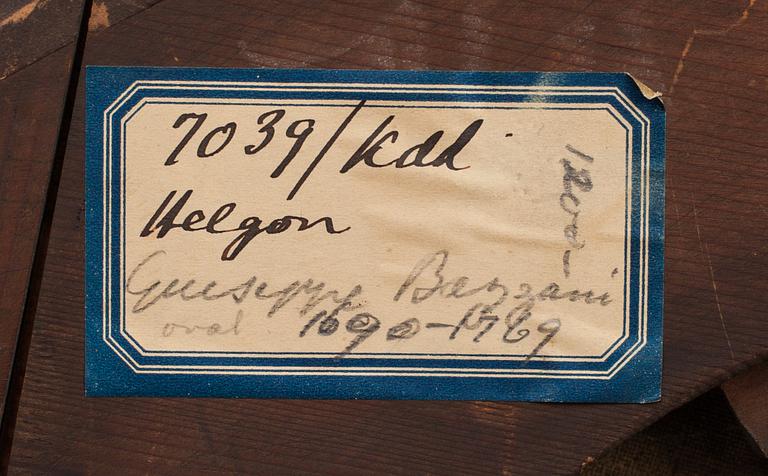 7039/Kdd
Helgon
Guiseppe Bazzani
oval 1690-1769
1200:-